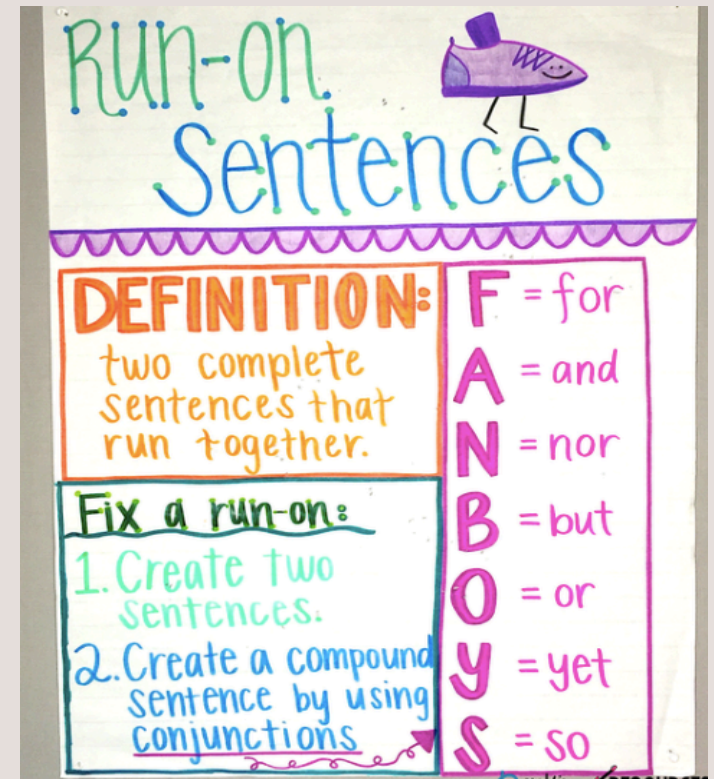 Run-on
Sentences
DEFINITION:
two complete
sentences that
run together.
Fix a run-on:
1. Create two
sentences.
2. Create a compound
sentence by using
conjunctions
F = for
A = and
N = nor
B = but
O = or
Y = yet
S = so